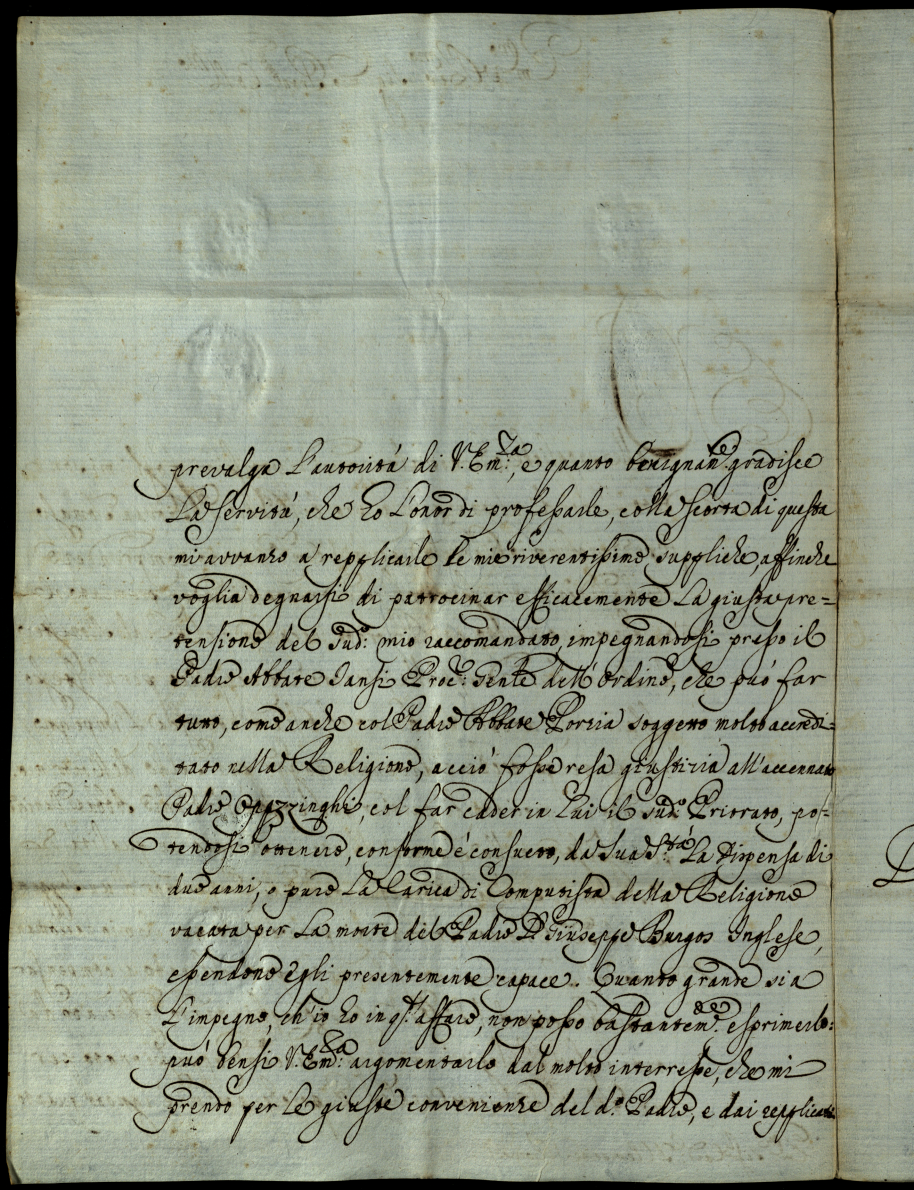 prevalga L'autorità di V. Em.za, e quanto benignam.te gradisce
La servitù, che hò L'onor di professarle, colla scorta di questa
mi avvanzo a' repplicarle le mie riverentissime suppliche, affinche
voglia degnarsi di patrocinar efficacemente La giusta pre=
tensione del sud.o mio raccomandato, impegnandosi presso il
Padre Abbate Sansi Proc.e Gen.le dell'Ordine, che può far
tutto, come anche col Padre Abbate Porzia soggetto molto accredi=
tato nella Religione, acciò fosse resa giustizia all'accennato
Padre Opezzinghi, col far cader in Lui il sud.o Priorato, po=
tendosi ottenere, conforme è consueto, da Sua S.tà La dispensa di
due anni, o pure La Carica di Computista della Religione
vacata per La morte del Padre D. Giuseppe Burgos Inglese,
essendone Egli presentemente capace. Quanto grande sia
L'impegno, ch'io hò in q.to affare, non posso bastantem.te esprimerlo:
può bensi V. Em.za argomentarlo dal molto interresse, che mi
prendo per Le giuste convenienze del d.o Padre, e dai repplicati